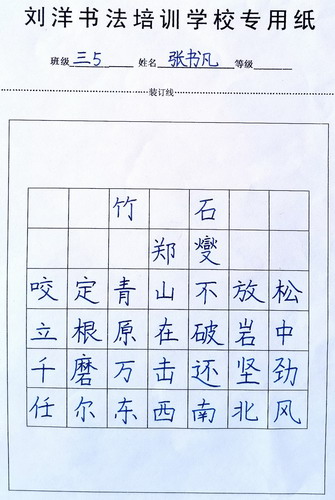 刘洋书法培训学校专用纸
班级 三5 姓名 张书凡 等级
装订线
竹 石
郑 燮
咬定青山不放松
立根原在破岩中
千磨万击还坚劲
任尔东西南北风